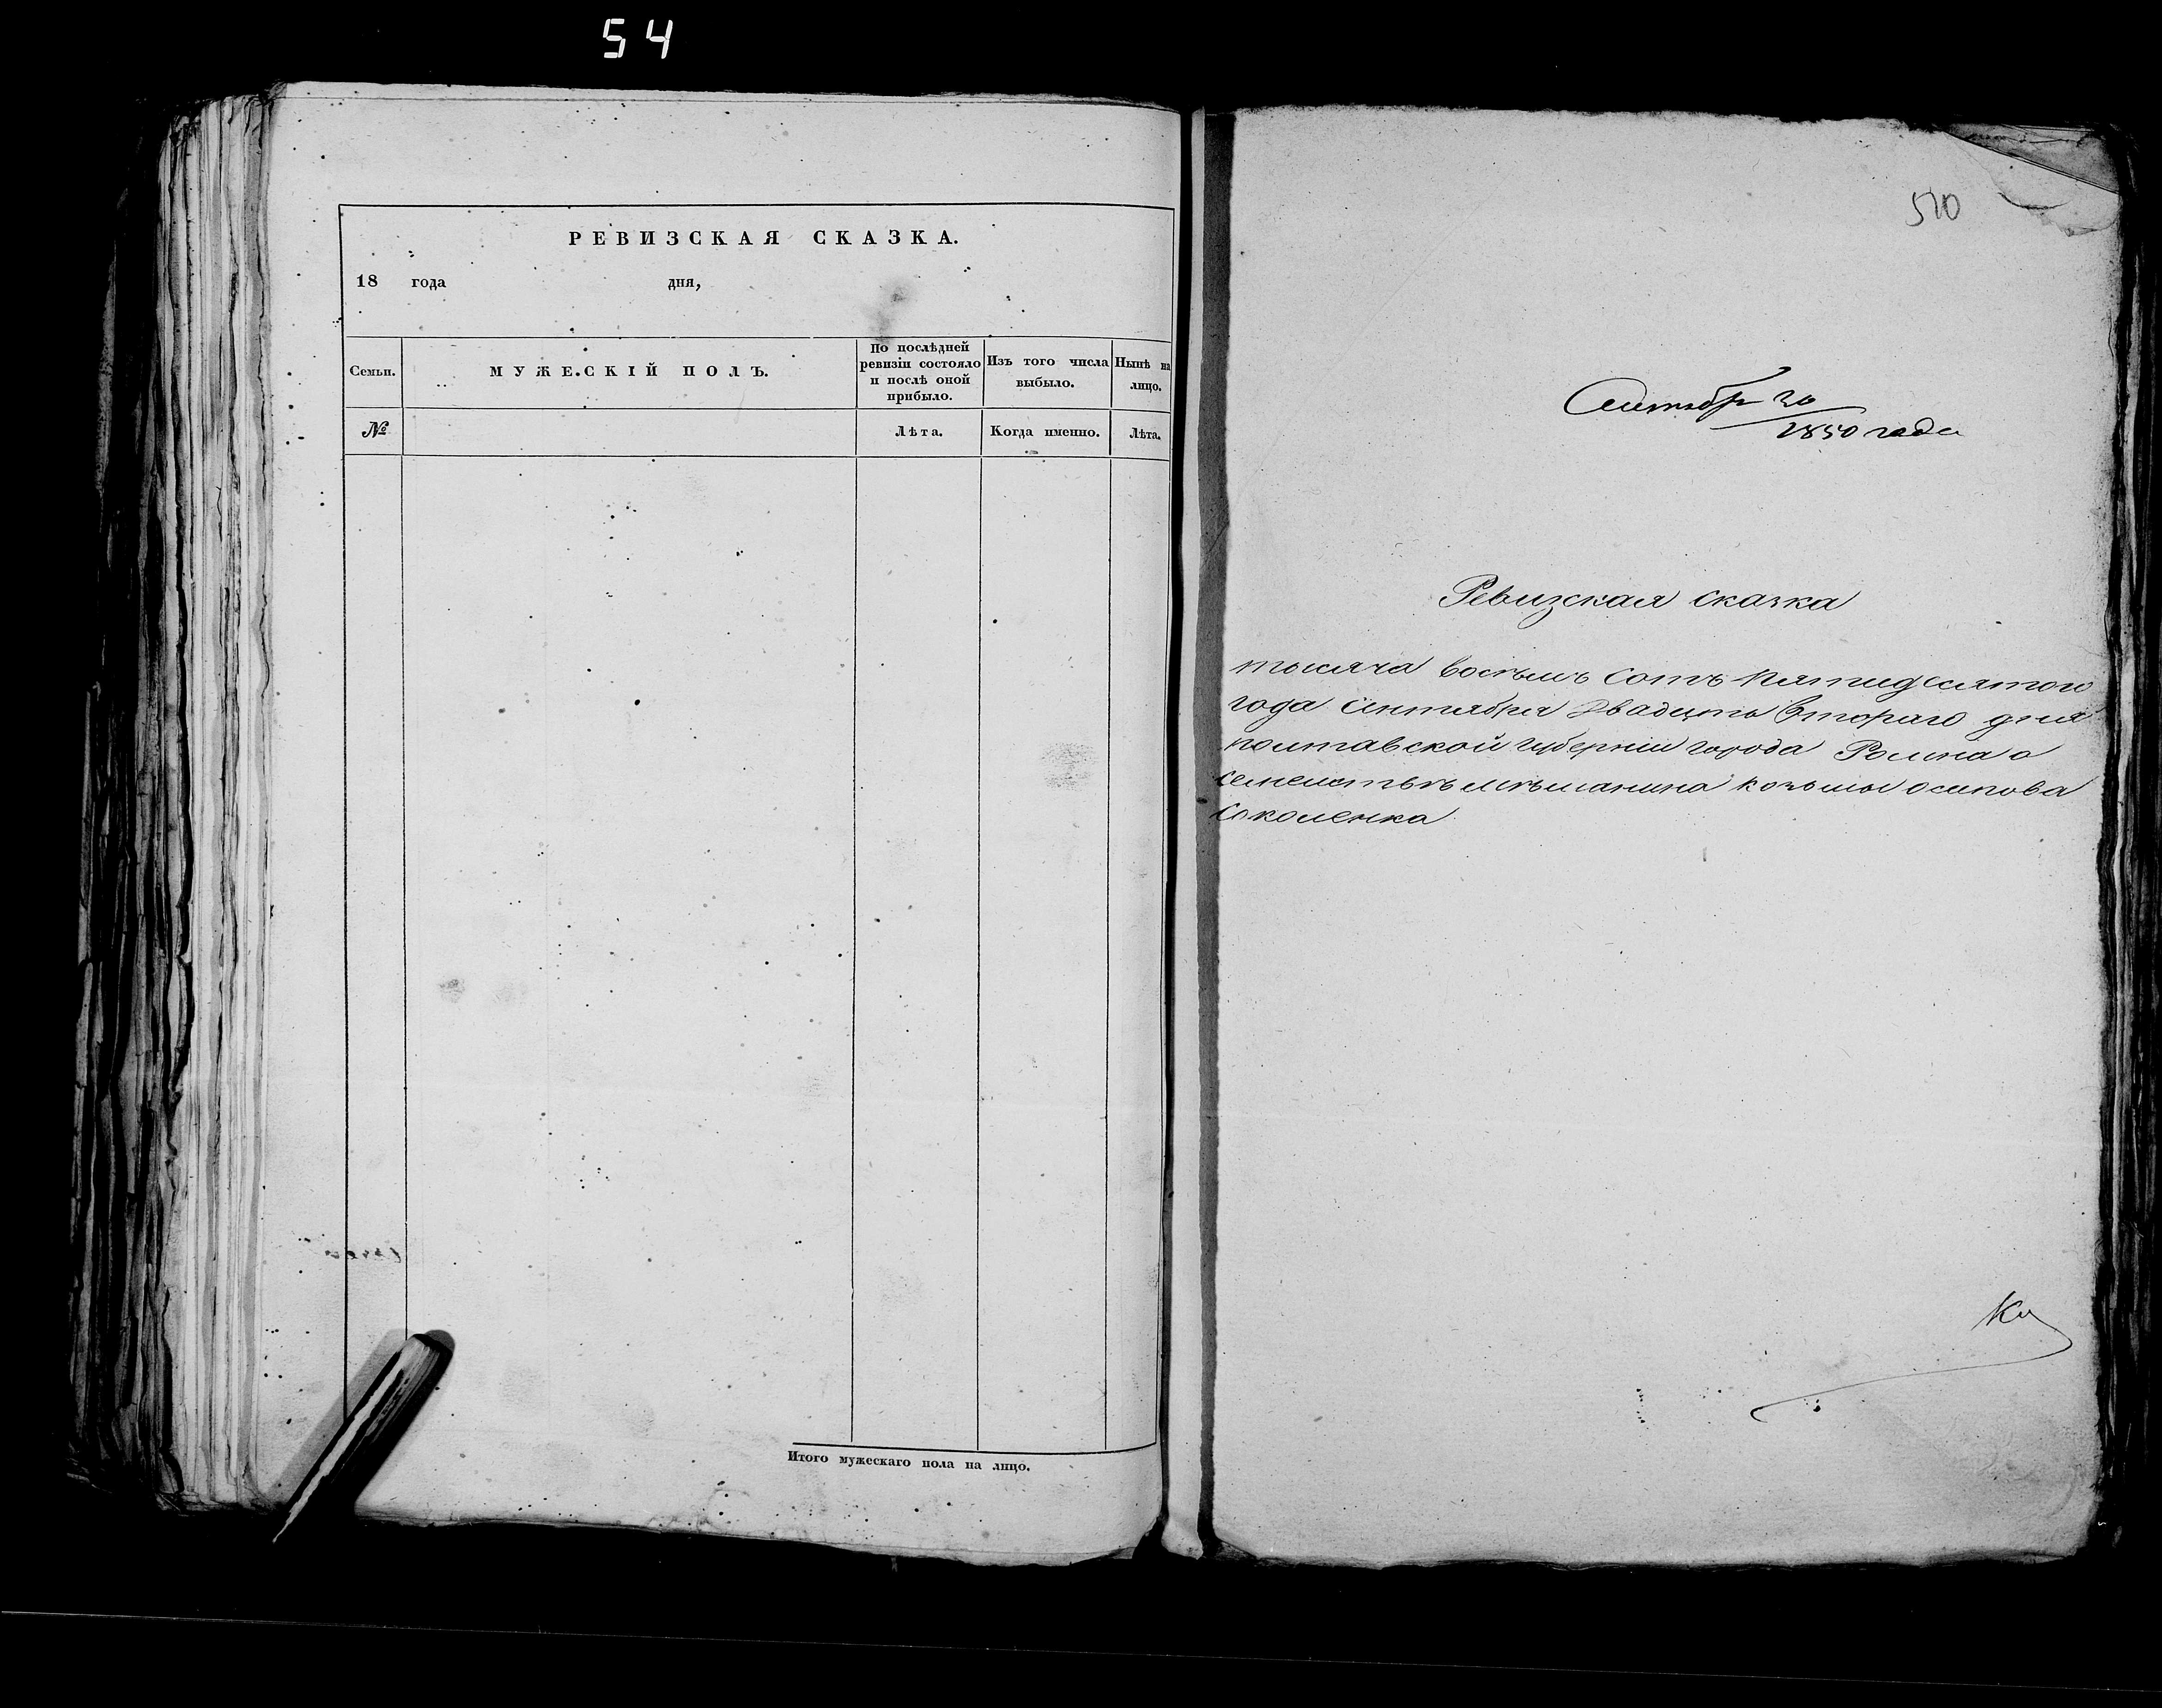 54
РЕВИЗСКАЯ СКАЗКА.
18 года дня,
Семьи.
МУЖЕСКІЙ ПОЛЪ.
По послѣдней
ревизіи состояло
и послѣ оной
прибыло.
Изъ того числа
выбыло.
Нынѣ на
лицо.
№
Лѣта.
Когда именно.
Лѣта.
Итого мужескаго пола на лицо.
510
1850 года
Ревизская сказка
тысяча восѣмь сотъ пятидесятого
года сентября двадцать втораго дня
полтавской губерніи города Ромна о
семействѣ мѣщанина козьмы осипова
Соколенка